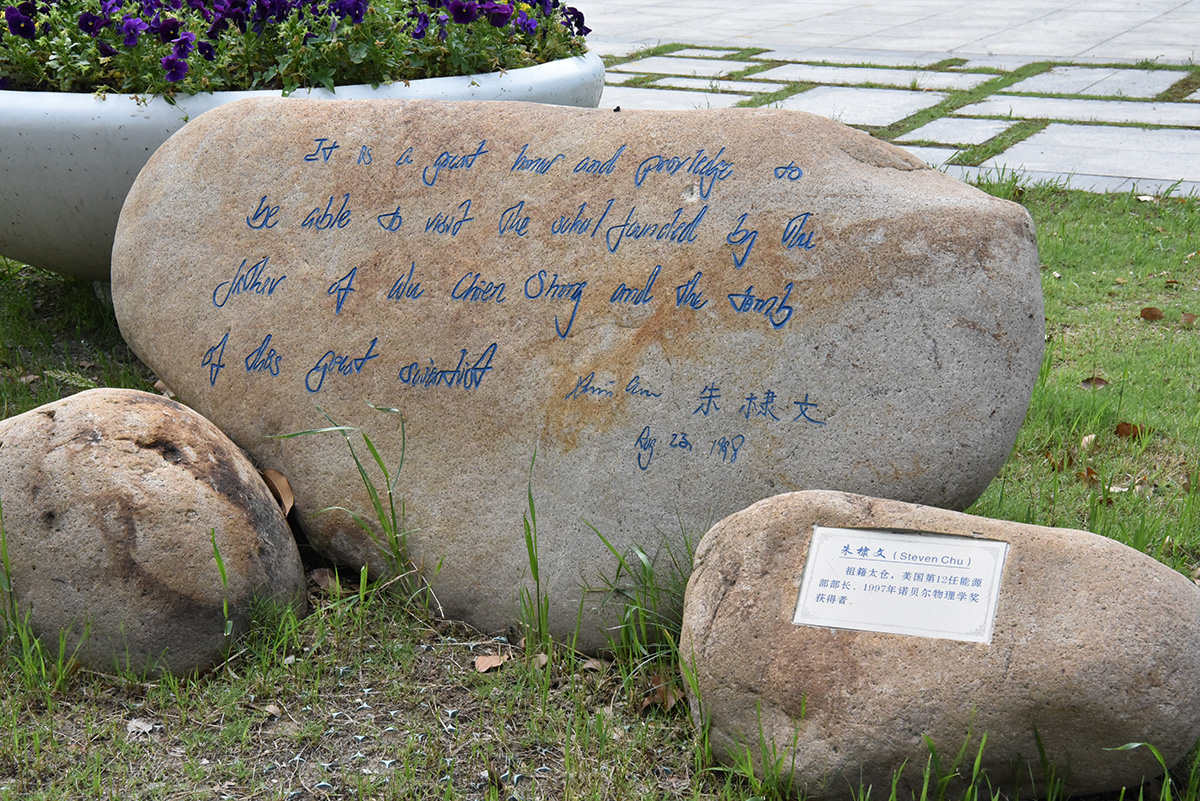 It is a great honor and privledge to
be able to visit the schul founded by the
father of Wu Chien Shong and the tomb
of this great scientist
朱棣文
Aug 23, 1998
朱棣文（Steven Chu）
祖籍太仓，美国第12任能源
部部长、1997年诺贝尔物理学奖
获得者。